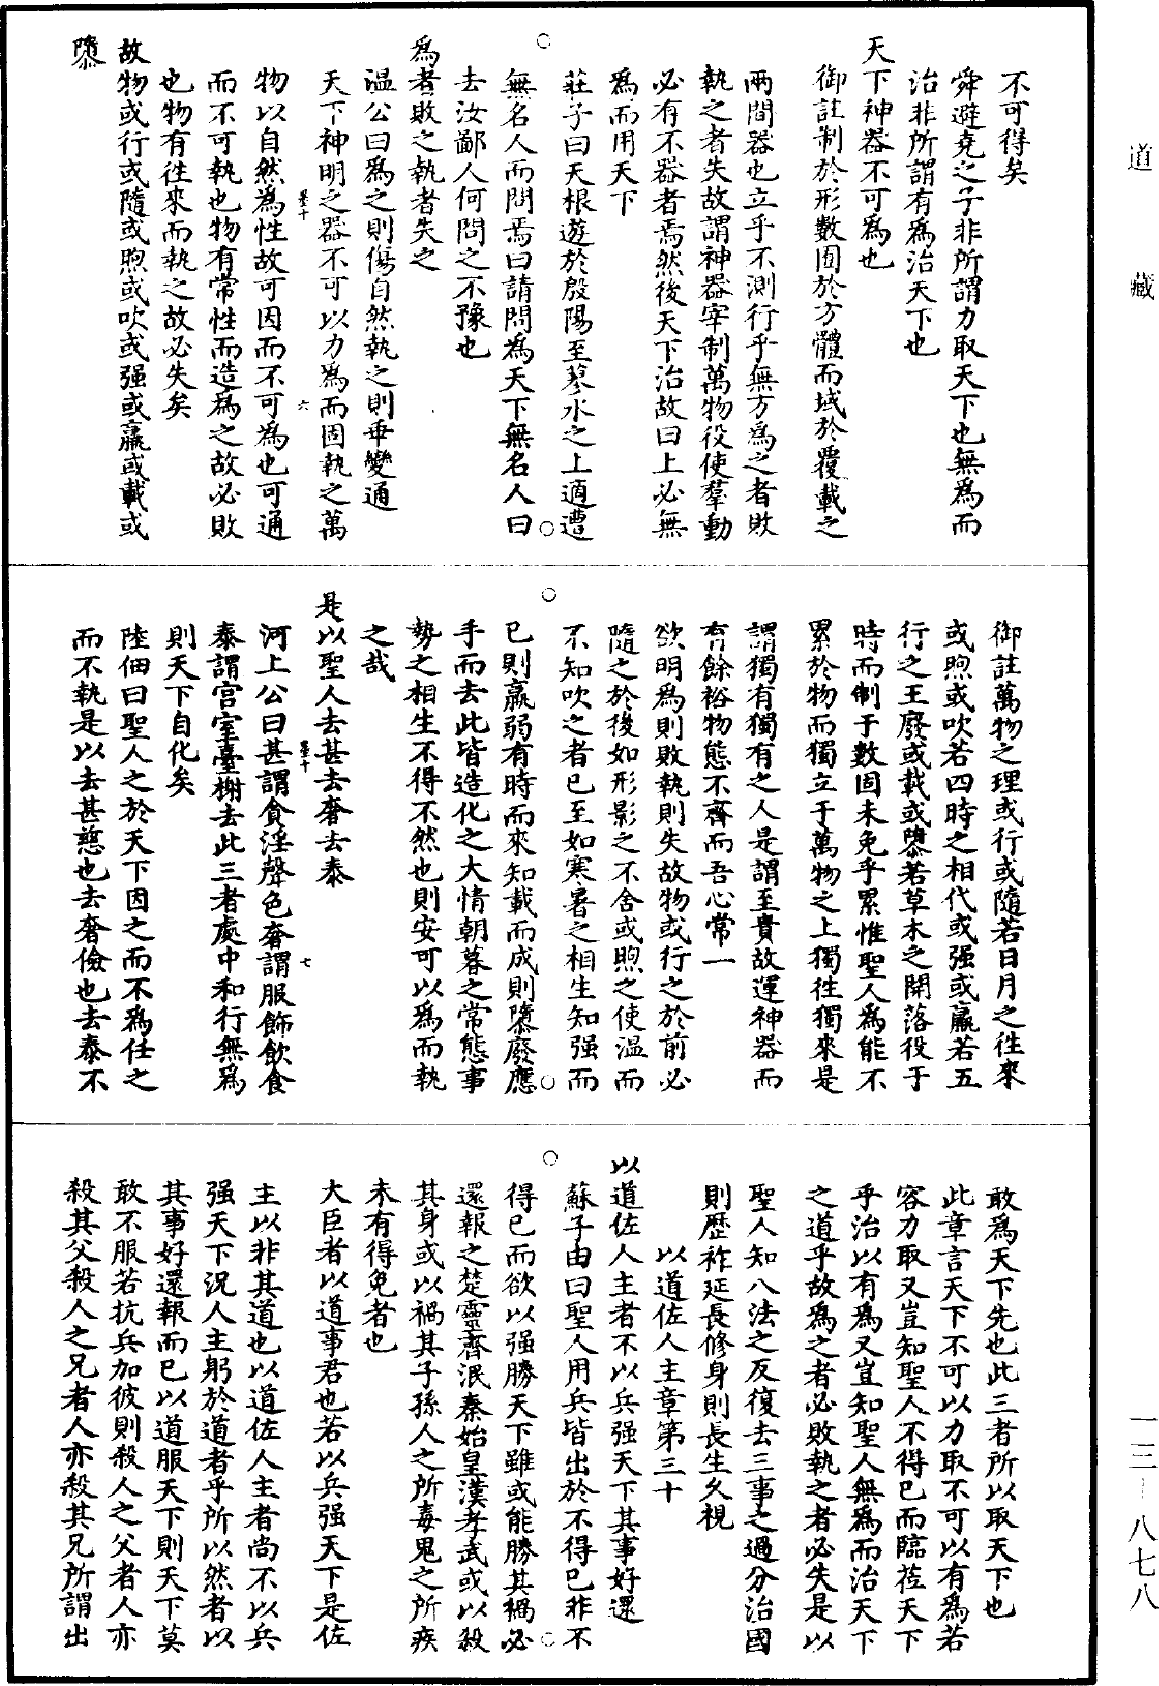 道藏
不可得矣
舜避堯之子非所謂力取天下也無為而
治非所謂有為治天下也
天下神器不可為也
御註制於形數囿於方體而域於覆載之
兩間器也立乎不測行乎無方為之者敗
執之者失故謂神器宰制萬物役使羣動
必有不器者焉然後天下治故曰上必無
為而用天下
莊子曰天根遊於殷陽至蓼水之上適遭
無名人而問焉曰請問為天下無名人曰
去汝鄙人何問之不豫也
為者敗之執者失之
温公曰為之則傷自然執之則乖變通
天下神明之器不可以力為而固執之萬
物以自然為性故可因而不可為也可通
而不可執也物有常性而造為之故必敗
也物有往來而執之故必失矣
故物或行或隨或煦或吹或强或羸或載或
隳
御註萬物之理或行或隨若日月之往來
或煦或吹若四時之相代或强或羸若五
行之王廢或載或隳若草木之開落役于
時而制于數固未免乎累惟聖人為能不
累於物而獨立于萬物之上獨往獨來是
謂獨有獨有之人是謂至貴故運神器而
有餘裕物態不齊而吾心常一
欲明為則敗執則失故物或行之於前必
隨之於後如形影之不舍或煦之使温而
不知吹之者已至如寒暑之相生知强而
已則羸弱有時而來知載而成則隳廢應
手而去此皆造化之大情朝暮之常態事
勢之相生不得不然也則安可以為而執
之哉
是以聖人去甚去奢去泰
河上公曰甚謂貪淫聲色奢謂服飾飲食
泰謂宫室臺榭去此三者處中和行無為
則天下自化矣
陸佃曰聖人之於天下因之而不為任之
而不執是以去甚慈也去奢儉也去泰不
敢為天下先也此三者所以取天下也
此章言天下不可以力取不可以有為若
容力取又豈知聖人不得已而臨莅天下
乎治以有為又豈知聖人無為而治天下
之道乎故為之者必敗執之者必失是以
聖人知八法之反復去三事之過分治國
則歷祚延長修身則長生久視
以道佐人主章第三十
以道佐人主者不以兵强天下其事好還
蘇子由曰聖人用兵皆出於不得已非不
得已而欲以强勝天下雖或能勝其禍必
還報之楚靈齊湣秦始皇漢孝武或以殺
其身或以禍其子孫人之所毒鬼之所疾
未有得免者也
大臣者以道事君也若以兵强天下是佐
主以非其道也以道佐人主者尚不以兵
强天下況人主躬於道者乎所以然者以
其事好還報而已以道服天下則天下莫
敢不服若抗兵加彼則殺人之父者人亦
殺其父殺人之兄者人亦殺其兄所謂出
一三—八七八